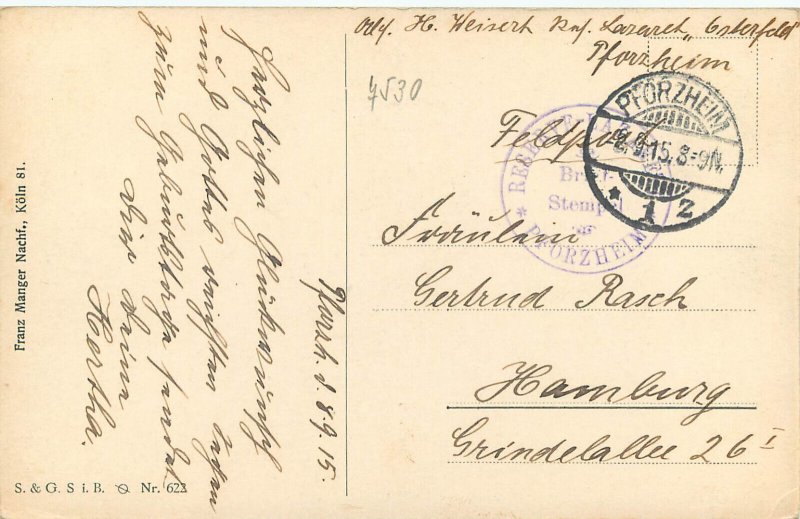 Abs. H. Weisert Res. Lazaret „Osterfeld"
Pforzheim
7530
PFORZHEIM
8.9.15.8-9N.
* 1 2
Feldpost
RESERVE
Brief-
Stempel
* PFORZHEIM *
Fräulein
Gertrud Rasch
Hamburg
Grindelallee 26 I
Pforzh. d. 8.9.15.
Herzlichen Glückwunsch
und Gottes reichsten Segen
zum Geburtstage sendet
Dir Deine
Hertha.
Franz Manger Nachf., Köln 81.
S. & G. S i. B. Nr. 623